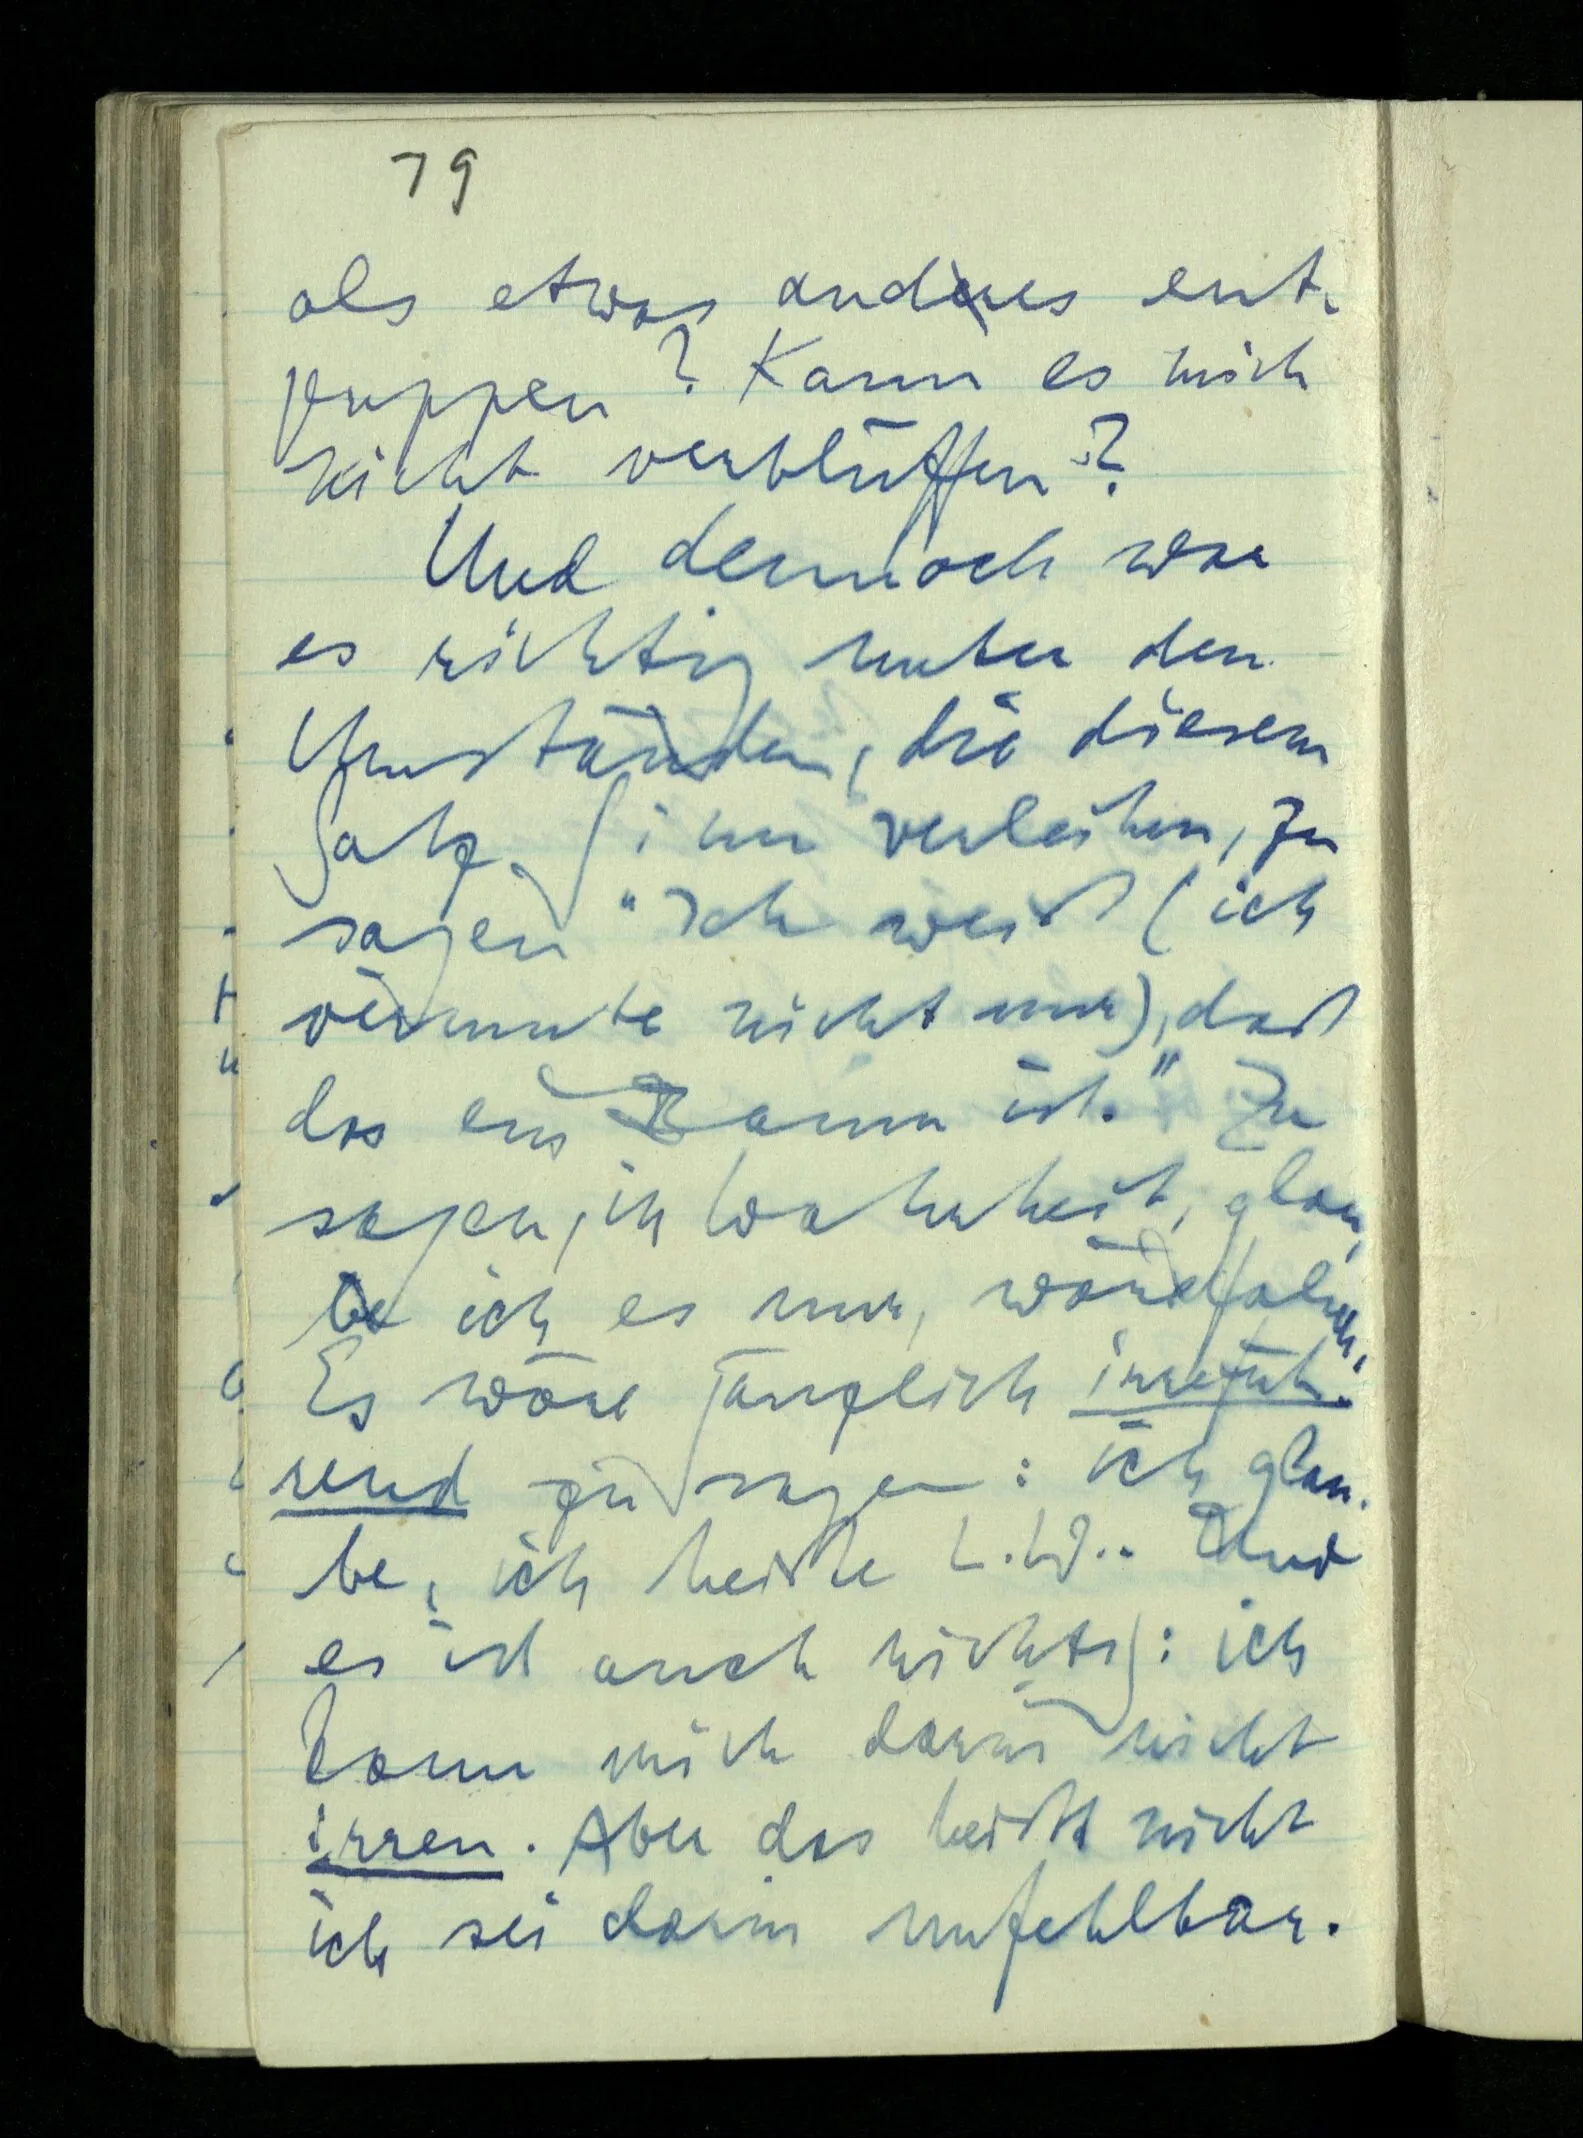 79
als etwas anderes ent-
puppen? Kann es mich
nicht verblüffen?
Und dennoch war
es richtig unter den
Umständen, die diesem
Satz Sinn verleihen, zu
sagen "Ich weiß (ich
vermute nicht nur), daß
das ein Baum ist." Zu
sagen, in Wahrheit, glau-
be ich es nur, wäre falsch.
Es wäre gänzlich irrefüh-
rend zu sagen: ich glau-
be, ich heiße L.W.. Und
es ist auch richtig: ich
kann mich darin nicht
irren. Aber das heißt nicht
ich sei darin unfehlbar.